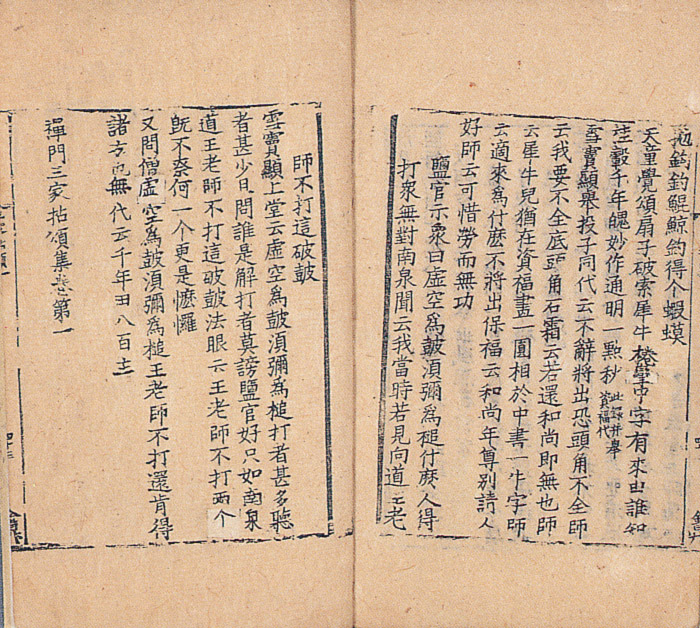 抛鈎釣鯤鯨釣得个蝦蟆
天童覺頌扇子破索犀牛棬攣中字有來由誰知
桂轂千年魄妙作通明一點秋此録并舉資福代
雪竇顯舉投子同代云不辭將出恐頭角不全師
云我要不全底頭角石霜云若還和尚即無也師
云犀牛兒猶在資福畫一圓相於中書一牛字師
云適來爲什麽不將出保福云和尚年尊別請人
好師云可惜勞而無功
鹽官示衆曰虛空爲皷湏彌爲槌什麽人得
打衆無對南泉聞云我當時若見向道王老
師不打這破皷
雲竇顯上堂云虛空爲皷湏彌爲槌打者甚多聽
者甚少且問誰是解打者莫謗鹽官好只如南泉
道王老師不打這破皷法眼云王老師不打兩个
旣不柰何一个更是懡㦬
又問僧虛空爲皷湏彌爲槌王老師不打還肯得
諸方也無代云千年田八百主
禪門三家拈頌集卷第一